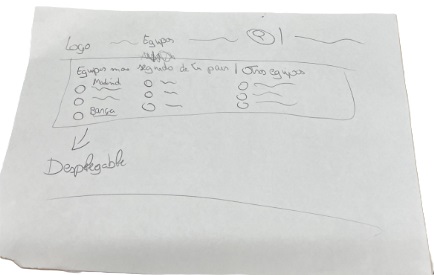 Logo Equipos
Equipos mas seguido de tu pais | Otro equipos
Madrid
Barça
Desplegable